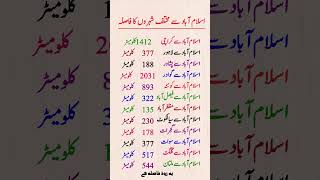 اسلام آباد سے مختلف شہروں کا فاصلہ
اسلام آباد سے کراچی 1412 کلومیٹر
اسلام آباد سے لاہور 377 کلومیٹر
اسلام آباد سے پشاور 188 کلومیٹر
اسلام آباد سے گوادر 2031 کلومیٹر
اسلام آباد سے کوئٹہ 893 کلومیٹر
اسلام آباد سے فیصل آباد 322 کلومیٹر
اسلام آباد سے مظفرآباد 135 کلومیٹر
اسلام آباد سے سیالکوٹ 230 کلومیٹر
اسلام آباد سے گجرات 178 کلومیٹر
اسلام آباد سے سوات 377 کلومیٹر
اسلام آباد سے گلگت 517 کلومیٹر
اسلام آباد سے ملتان 544 کلومیٹر
یہ روڈ فاصلہ ہے